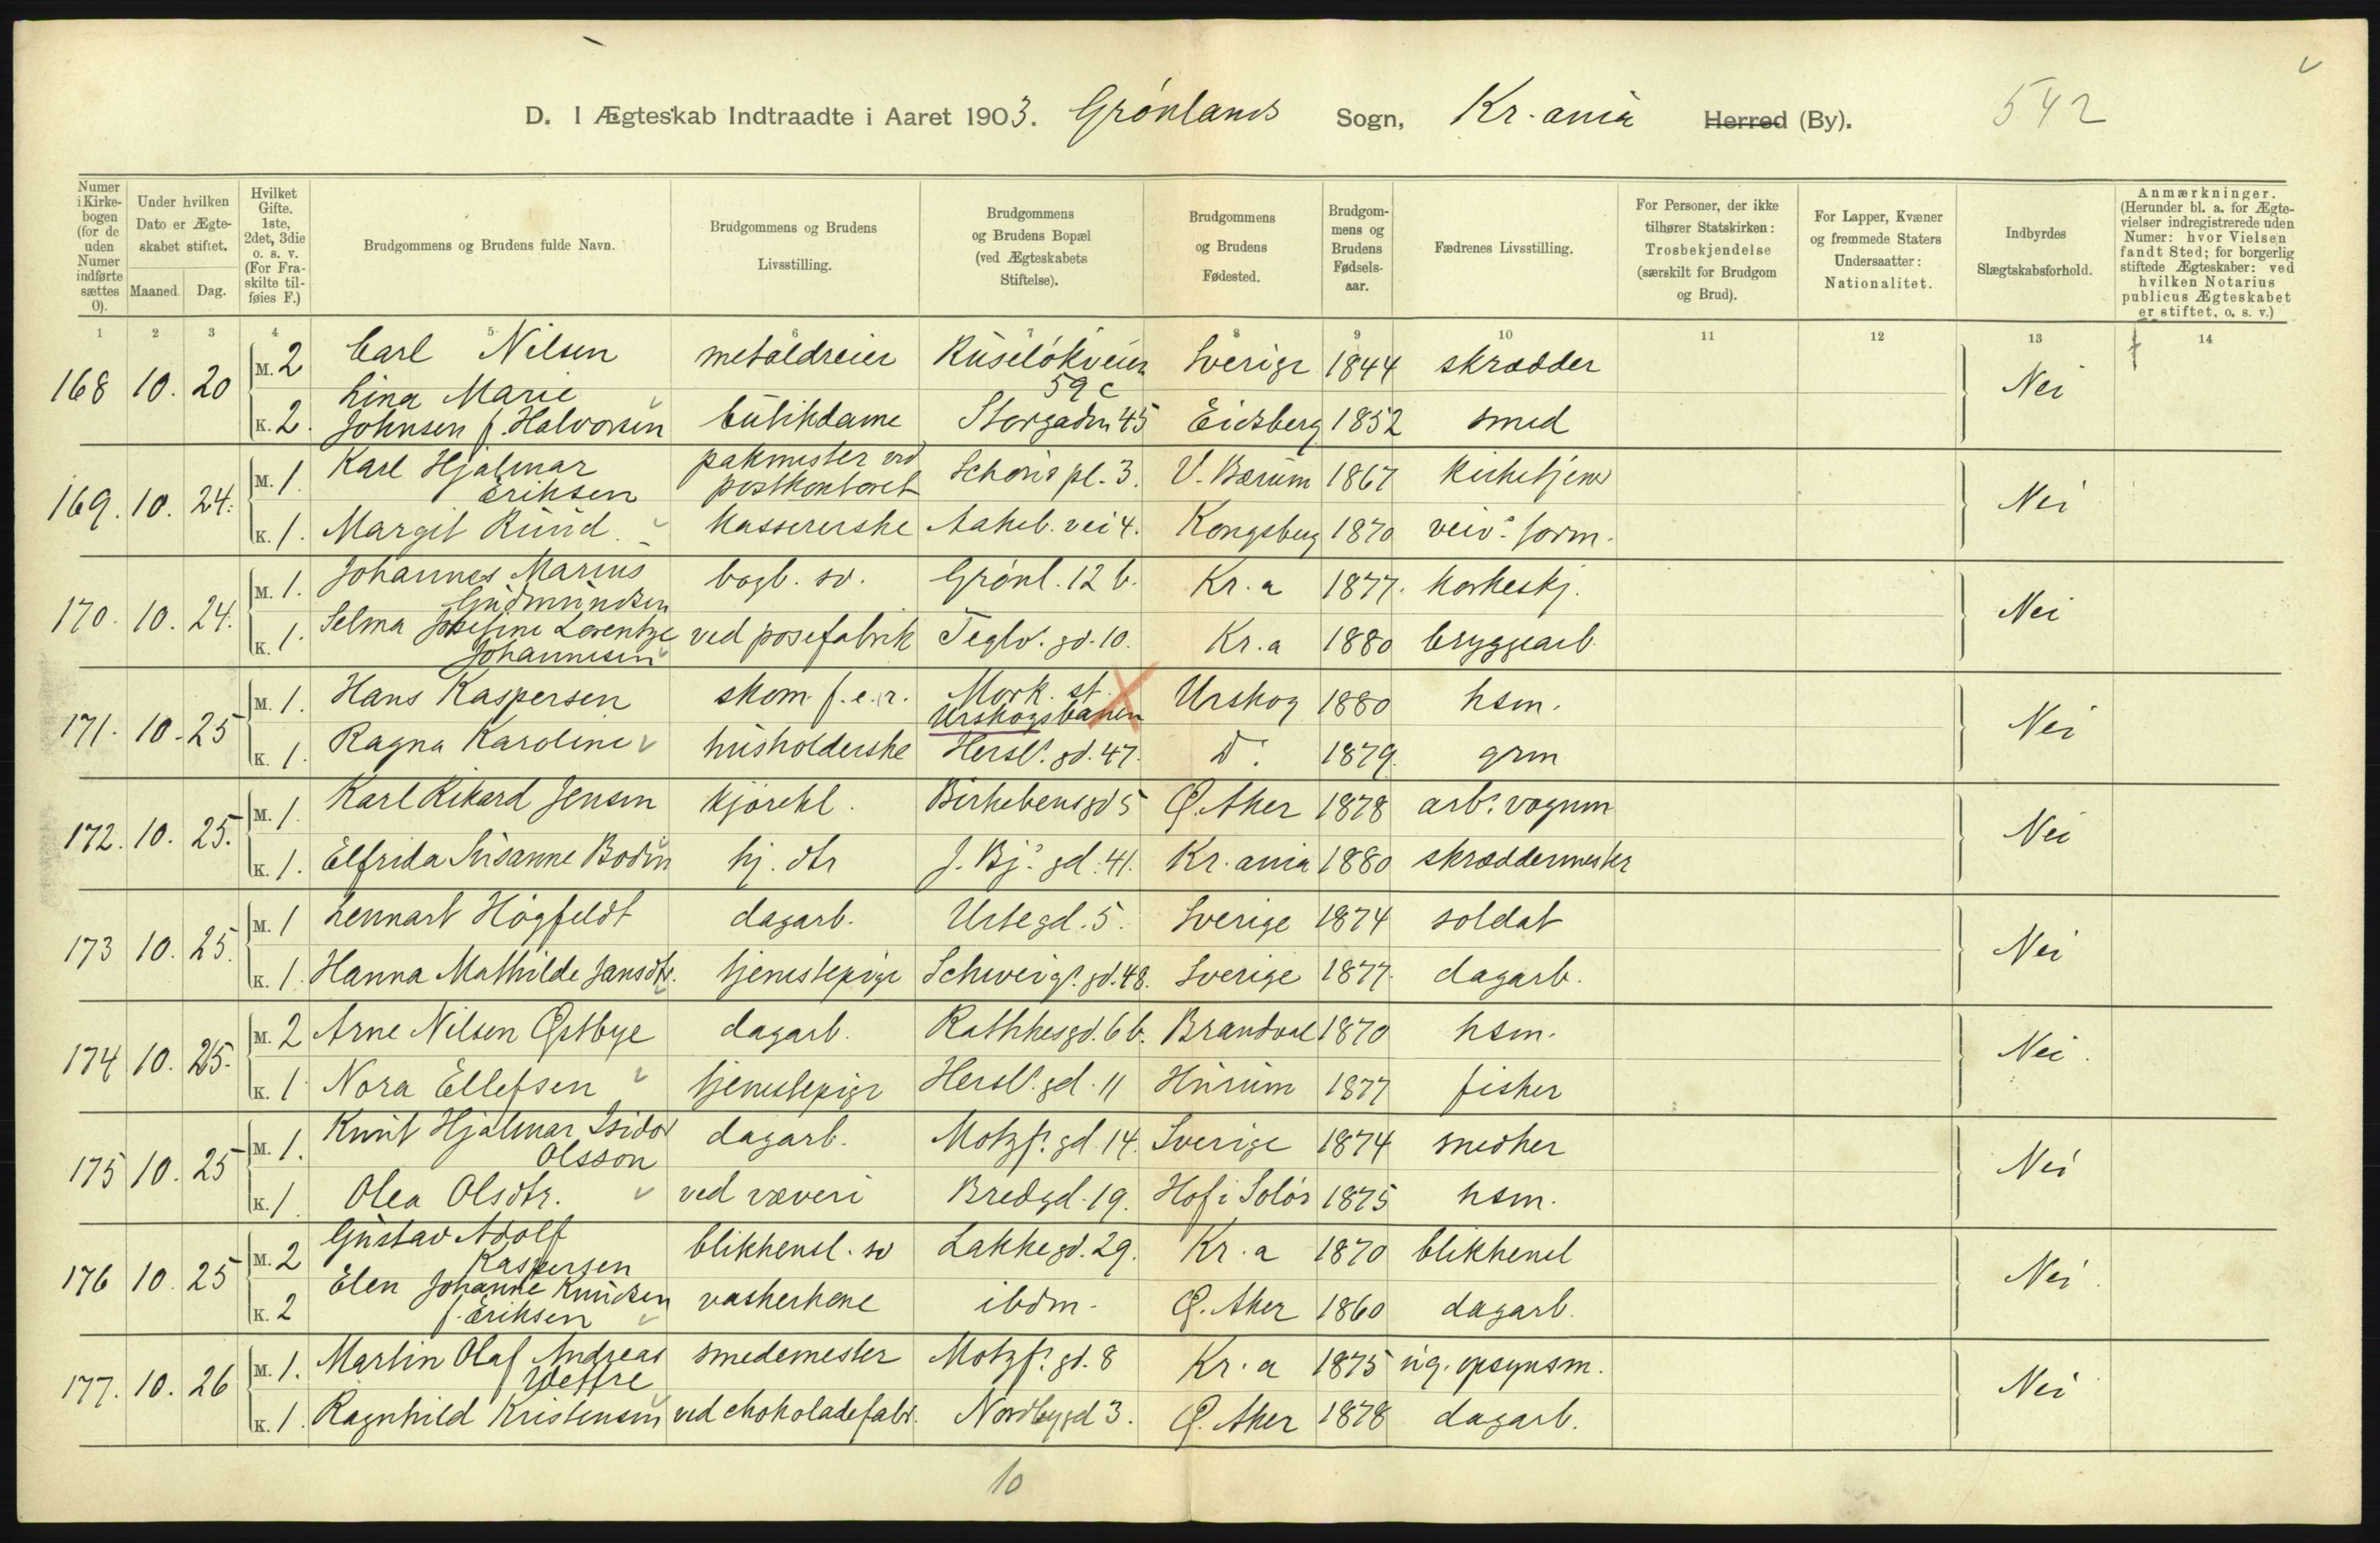 D. I Ægteskab Indtraadte i Aaret 1903. Grönlands Sogn, Kr.ania Herred (By). 542
Numer i Kirkebogen (for de uden Numer indførte sættes 0).
Under hvilken Dato er Ægteskabet stiftet.
Maaned. Dag.
Hvilket Gifte. 1ste, 2det, 3die o. s. v. (For Fraskilte tilføies F.)
Brudgommens og Brudens fulde Navn.
Brudgommens og Brudens Livsstilling.
Brudgommens og Brudens Bopæl (ved Ægteskabets Stiftelse).
Brudgommens og Brudens Fødested.
Brudgommens og Brudens Fødselsaar.
Fædrenes Livsstilling.
For Personer, der ikke tilhører Statskirken: Trosbekjendelse (særskilt for Brudgom og Brud).
For Lapper, Kvæner og fremmede Staters Undersaatter: Nationalitet.
Indbyrdes Slægtskabsforhold.
Anmærkninger. (Herunder bl. a. for Ægtevielser indregistrerede uden Numer: hvor Vielsen fandt Sted; for borgerlig stiftede Ægteskaber: ved hvilken Notarius publicus Ægteskabet er stiftet, o. s. v.)
1 2 3 4 5 6 7 8 9 10 11 12 13 14
168 10. 20 M. 2 Carl Nilsen metaldreier Ruseløkveien 59 c Sverige 1844 skrædder Nei
K. 2. Lina Marie Johnsen f. Halvorsen butikdame Storgaden 45 Eidsberg 1852 smed
169. 10. 24. M. 1. Karl Hjalmar Eriksen pakmester ved postkontoret Schous pl. 3. V. Bærum 1867 kirketjener Nei
K. 1. Margit Ruud kassererske Aakeb. vei 4. Kongsberg 1870 veiv. form.
170. 10. 24. M. 1. Johannes Marius Gudmundsen bogb. sv. Grönl. 12 b. Kr.a 1877. korkeskj. Nei
K. 1. Selma Josefine Lorentze Johannesen ved posefabrik Teglv. gd. 10. Kr.a 1880 bryggearb.
171. 10. 25 M. 1. Hans Kaspersen skom. f. e. r. Mork. st. Urskogsbanen Urskog 1880 hsm. Nei
K. 1. Ragna Karoline husholderske Hersl. gd. 47. Do. 1879. grm
172. 10. 25. M. 1. Karl Rikard Jensen kjørekl. Birkebeinsgd 5 Ø. Aker 1878 arb. vognm Nei
K. 1. Elfrida Susanne Bodin hj. dtr J. Bj. gd. 41. Kr.ania 1880 skræddermester
173 10. 25. M. 1 Lennart Högfeldt dagarb. Urtegd. 5. Sverige 1874 soldat Nei
K. 1. Hanna Mathilde Jansdtr. tjenestepige Schweigs. gd. 48. Sverige 1877. dagarb.
174 10. 25. M. 2 Arne Nilsen Østbye dagarb. Rathkesgd. 6 b. Brandval 1870 hsm. Nei.
K. 1 Nora Ellefsen tjenestepige Hersl. gd. 11 Hurum 1877 fisker
175 10. 25 M. 1. Knut Hjalmar Isidor Olsson dagarb. Motzf. gd. 14. Sverige 1874 smed Nei
K. 1. Olea Olsdtr. ved væveri Bredgd. 19. Hof i Solør 1875 hsm.
176 10. 25 M. 2 Gustav Adolf Kaspersen blikkensl. sv Lakkegd. 29. Kr.a 1870 blikkensl Nei.
K. 2 Elen Johanne Knudsen f. Eriksen vaskerkone ibdm. Ø. Aker 1860 dagarb.
177. 10. 26 M. 1. Martin Olaf Andreas Wettre smedemester Motzf. gd. 8 Kr.a 1875 opsynsm. Nei
K. 1. Ragnhild Kristensen ved chokoladefabr. Nordbygd 3. Ø. Aker 1878 dagarb.
10